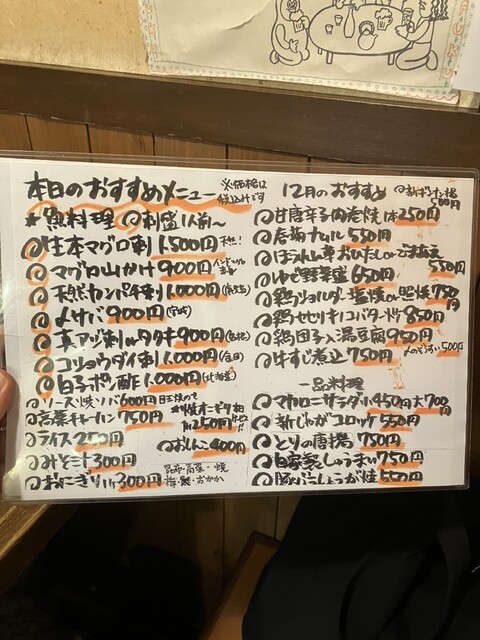 本日のおすすめメニュー ※価格は税込みです
*魚料理 刺盛1人前〜
生本マグロ刺 1.500円
マグロ山かけ 900円
天然カンパチ刺 1.000円
〆サバ 900円
真アジ刺orタタキ 900円
コショウダイ刺 1.000円
白子ポン酢 1.000円 (北海道)
ソース焼ソバ 600円 目玉焼のて
高菜チャーハン 750円
焼オニギリ 250円
ライス 250円
おしんこ 400円
みそ汁 300円
おにぎり1ケ 300円
昆布・高菜・焼
梅・鮭・おかか
12月のおすすめ
500円
甘唐辛子肉巻焼 1本 250円
春菊ナムル 550円
ほうれん草 おひたしorごまあえ 550円
ゆで野菜盛 650円
鶏ショルダー 塩焼or照焼 750円
鶏せせりネギバター炒 850円
鶏団子入湯豆腐 950円
牛すじ煮込 750円
〆のぞうすい 500円
一品料理
マカロニサラダ 小450円 大700円
新じゃがコロッケ 550円
とりの唐揚 750円
自家製しゅうまい 750円
豚バラしょうが焼 550円